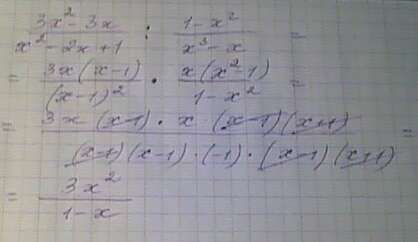 (3x² - 3x)/(x² - 2x + 1) : (1 - x²)/(x³ - x) =
= (3x(x-1))/((x-1)²) · (x(x²-1))/(1 - x²) =
= (3x (x-1) · x (x-1)(x+1))/((x-1)(x-1) · (-1) · (x-1)(x+1)) =
= (3x²)/(1 - x)